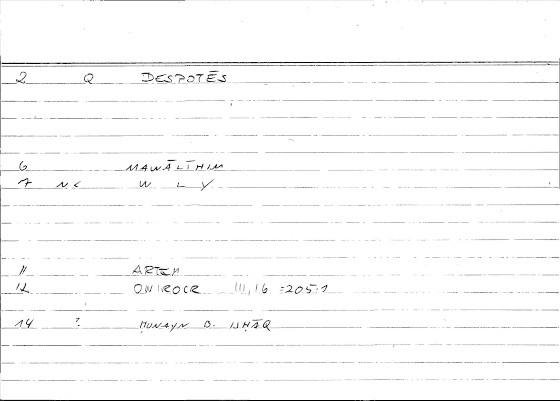 2 Q DESPOTĒS
6 MAWĀLĪHIM
7 NC W L Y
11 ARTEM
12 ONIROCR III,16 =205:1
14 ? ḤUNAYN B. ISḤĀQ